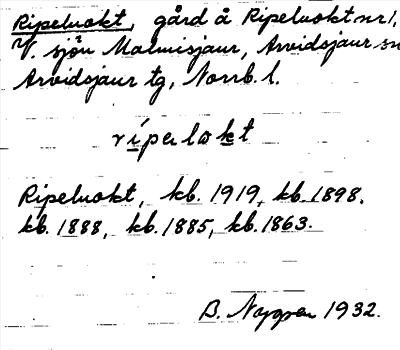 Ripeluokt, gård å Ripeluokt nr 1,
V. sjön Malmisjaur, Arvidsjaur sn
Arvidsjaur tg, Norrb. l.
ripelωkt
Ripeluokt, kb. 1919, kb. 1898,
kb. 1888, kb. 1885, kb. 1863.
B. Nygren 1932.